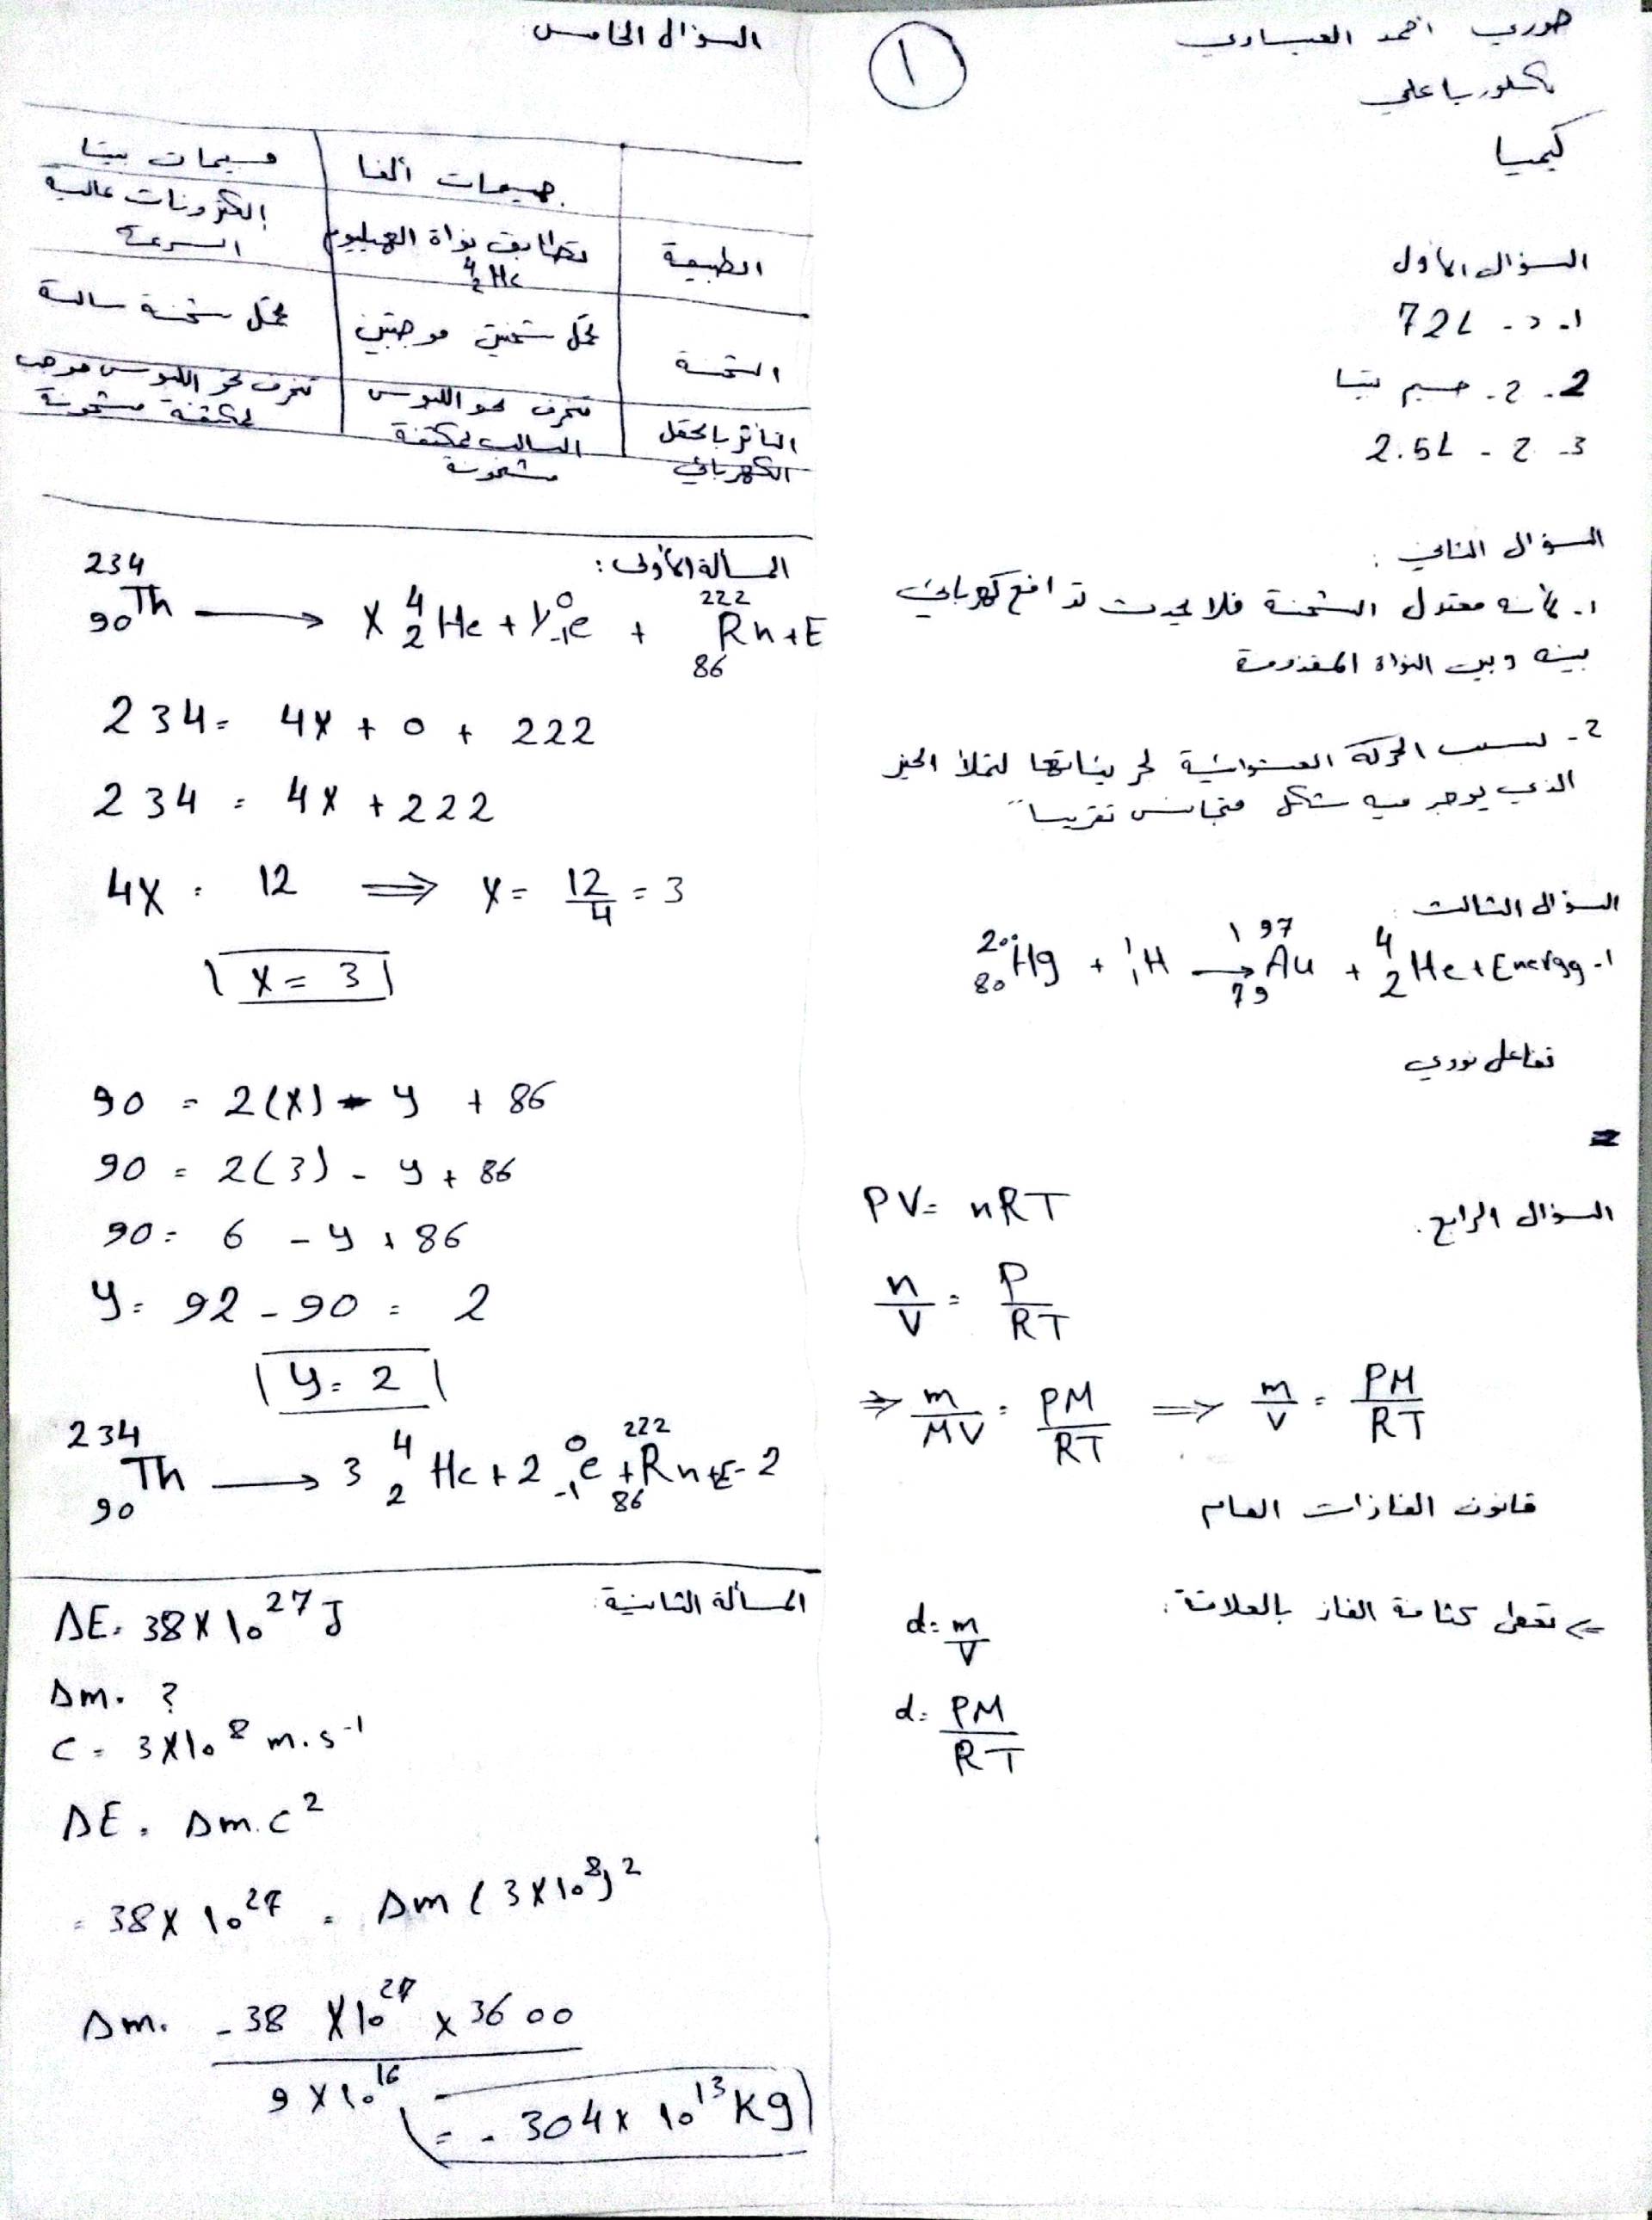 حوري احمد العبادي
بكلوريا علمي
كيميا
1
السؤال الأول
1. د. 72L
2. c. جسيم بيتا
3- c - 2.5L
السؤال الثاني :
1. لأنه معتدل الشحنة فلا يحدث تدافع كهربائي
بينه وبين النواة المقذوفة
2- بسبب الحركة العشوائية لجزيئاتها لتملأ الحيز
الذي يوجد فيه بشكل متجانس تقريباً
السؤال الثالث :
1- ²⁰⁰₈₀Hg + ¹₁H → ¹⁹⁷₇₉Au + ⁴₂He + Energy
تفاعل نووي
السؤال الرابع. PV = nRT
n/V = P/RT
⇒ m/MV = PM/RT ⇒ m/V = PM/RT
قانون الغازات العام
⇐ تعطى كثافة الغاز بالعلاقة: d = m/V
d = PM/RT
السؤال الخامس:
جسيمات ألفا جسيمات بيتا
الطبيعة تطابق نواة الهيليوم ⁴₂He إلكترونات عالية السرعة
الشحنة تحمل شحنتين موجبتين تحمل شحنة سالبة
التأثر بالحقل الكهربائي تنحرف نحو اللبوس السالب لمكثفة مشحونة تنحرف نحو اللبوس موجب لمكثفة مشحونة
المسألة الأولى :
²³⁴₉₀Th → X ⁴₂He + Y ⁰₋₁e + ²²²₈₆Rn + E
234 = 4X + 0 + 222
234 = 4X + 222
4X = 12 ⇒ X = 12/4 = 3
X = 3
90 = 2(X) - y + 86
90 = 2(3) - y + 86
90 = 6 - y + 86
y = 92 - 90 = 2
y = 2
²³⁴₉₀Th → 3 ⁴₂He + 2 ⁰₋₁e + ²²²₈₆Rn + E -2
المسألة الثانية:
ΔE = 38 × 10²⁷ J
Δm = ?
C = 3 × 10⁸ m.s⁻¹
ΔE = Δm.c²
= 38 × 10²⁷ = Δm (3 × 10⁸)²
Δm = -38 × 10²⁷ × 3600 / 9 × 10¹⁶
= - 304 × 10¹³ kg